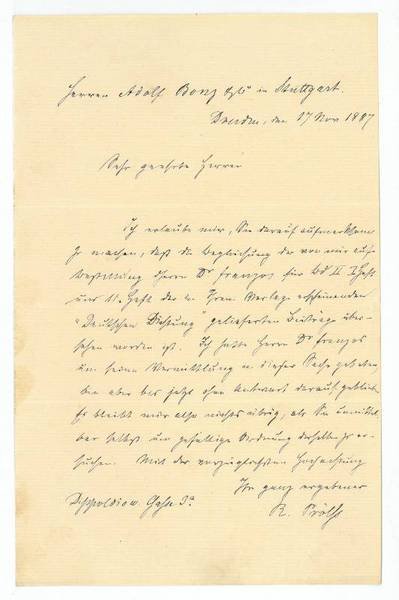 Herren Adolf Bonz & Co in Stuttgart.
Dresden, den 17 Nov 1887
Sehr geehrte Herren
Ich erlaube mir, Sie darauf aufmerksam
zu machen, daß die Begleichung der von mir auf
Bestellung Herrn Dr Franzos für Bd II Heft
und 11. Heft der in Ihrem Verlage erscheinenden
"Deutschen Dichtung" gelieferten Beiträge über-
sehen worden ist. Ich hatte Herrn Dr Franzos
um seine Vermittlung in dieser Sache gebeten
bin aber bis jetzt ohne Antwort darauf geblieben
Es bleibt mir also nichts übrig, als Sie unmittel
bar selbst um gefällige Ordnung derselben zu er-
suchen. Mit der vorzüglichsten Hochachtung
Ihr ganz ergebener
R. Prölß